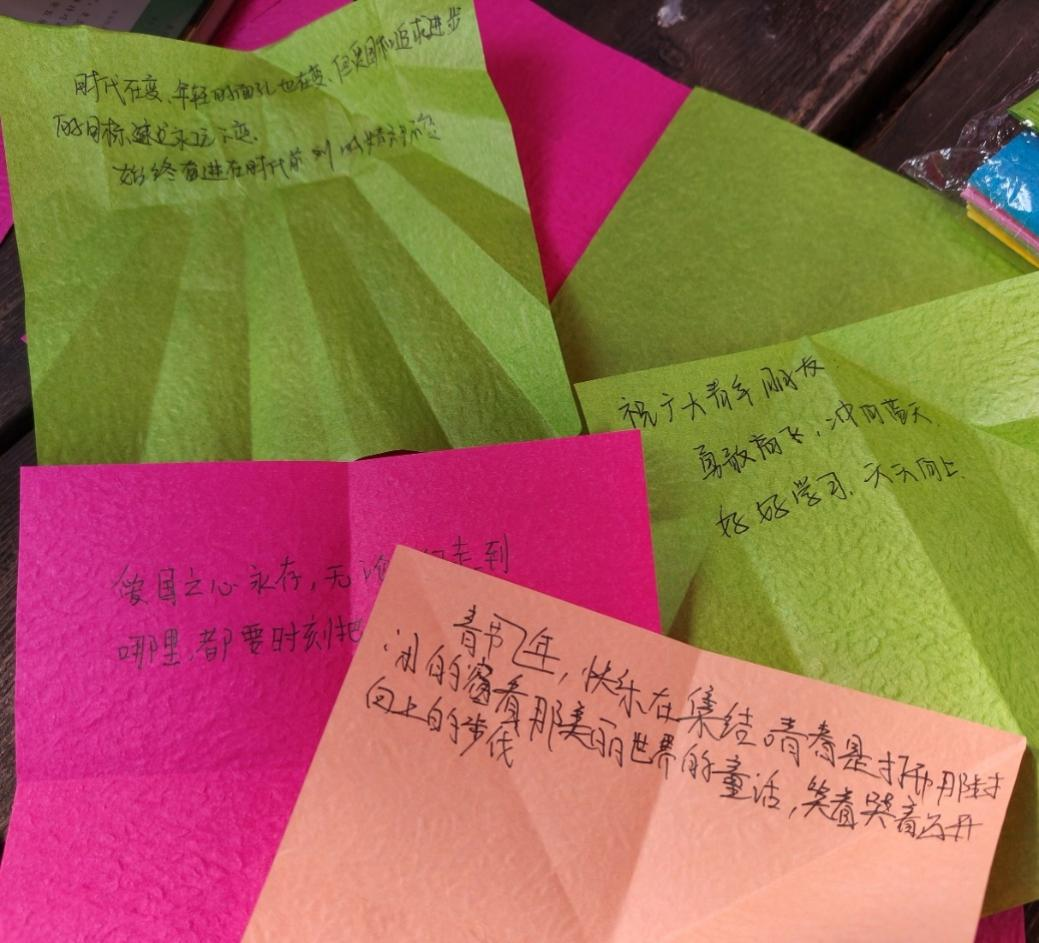 时代在变、年轻的面孔也在变、但爱国和追求进步
的目标、永远不变.
始终奋进在时代前列
祝广大青年朋友
勇敢高飞，冲向蓝天.
好好学习.天天向上.
爱国之心永存，无论 走到
哪里，都要时刻把
青 年，快乐在集结。青春是打开那封
闭的 着那美丽世界的童话，笑着哭着
向上的步伐